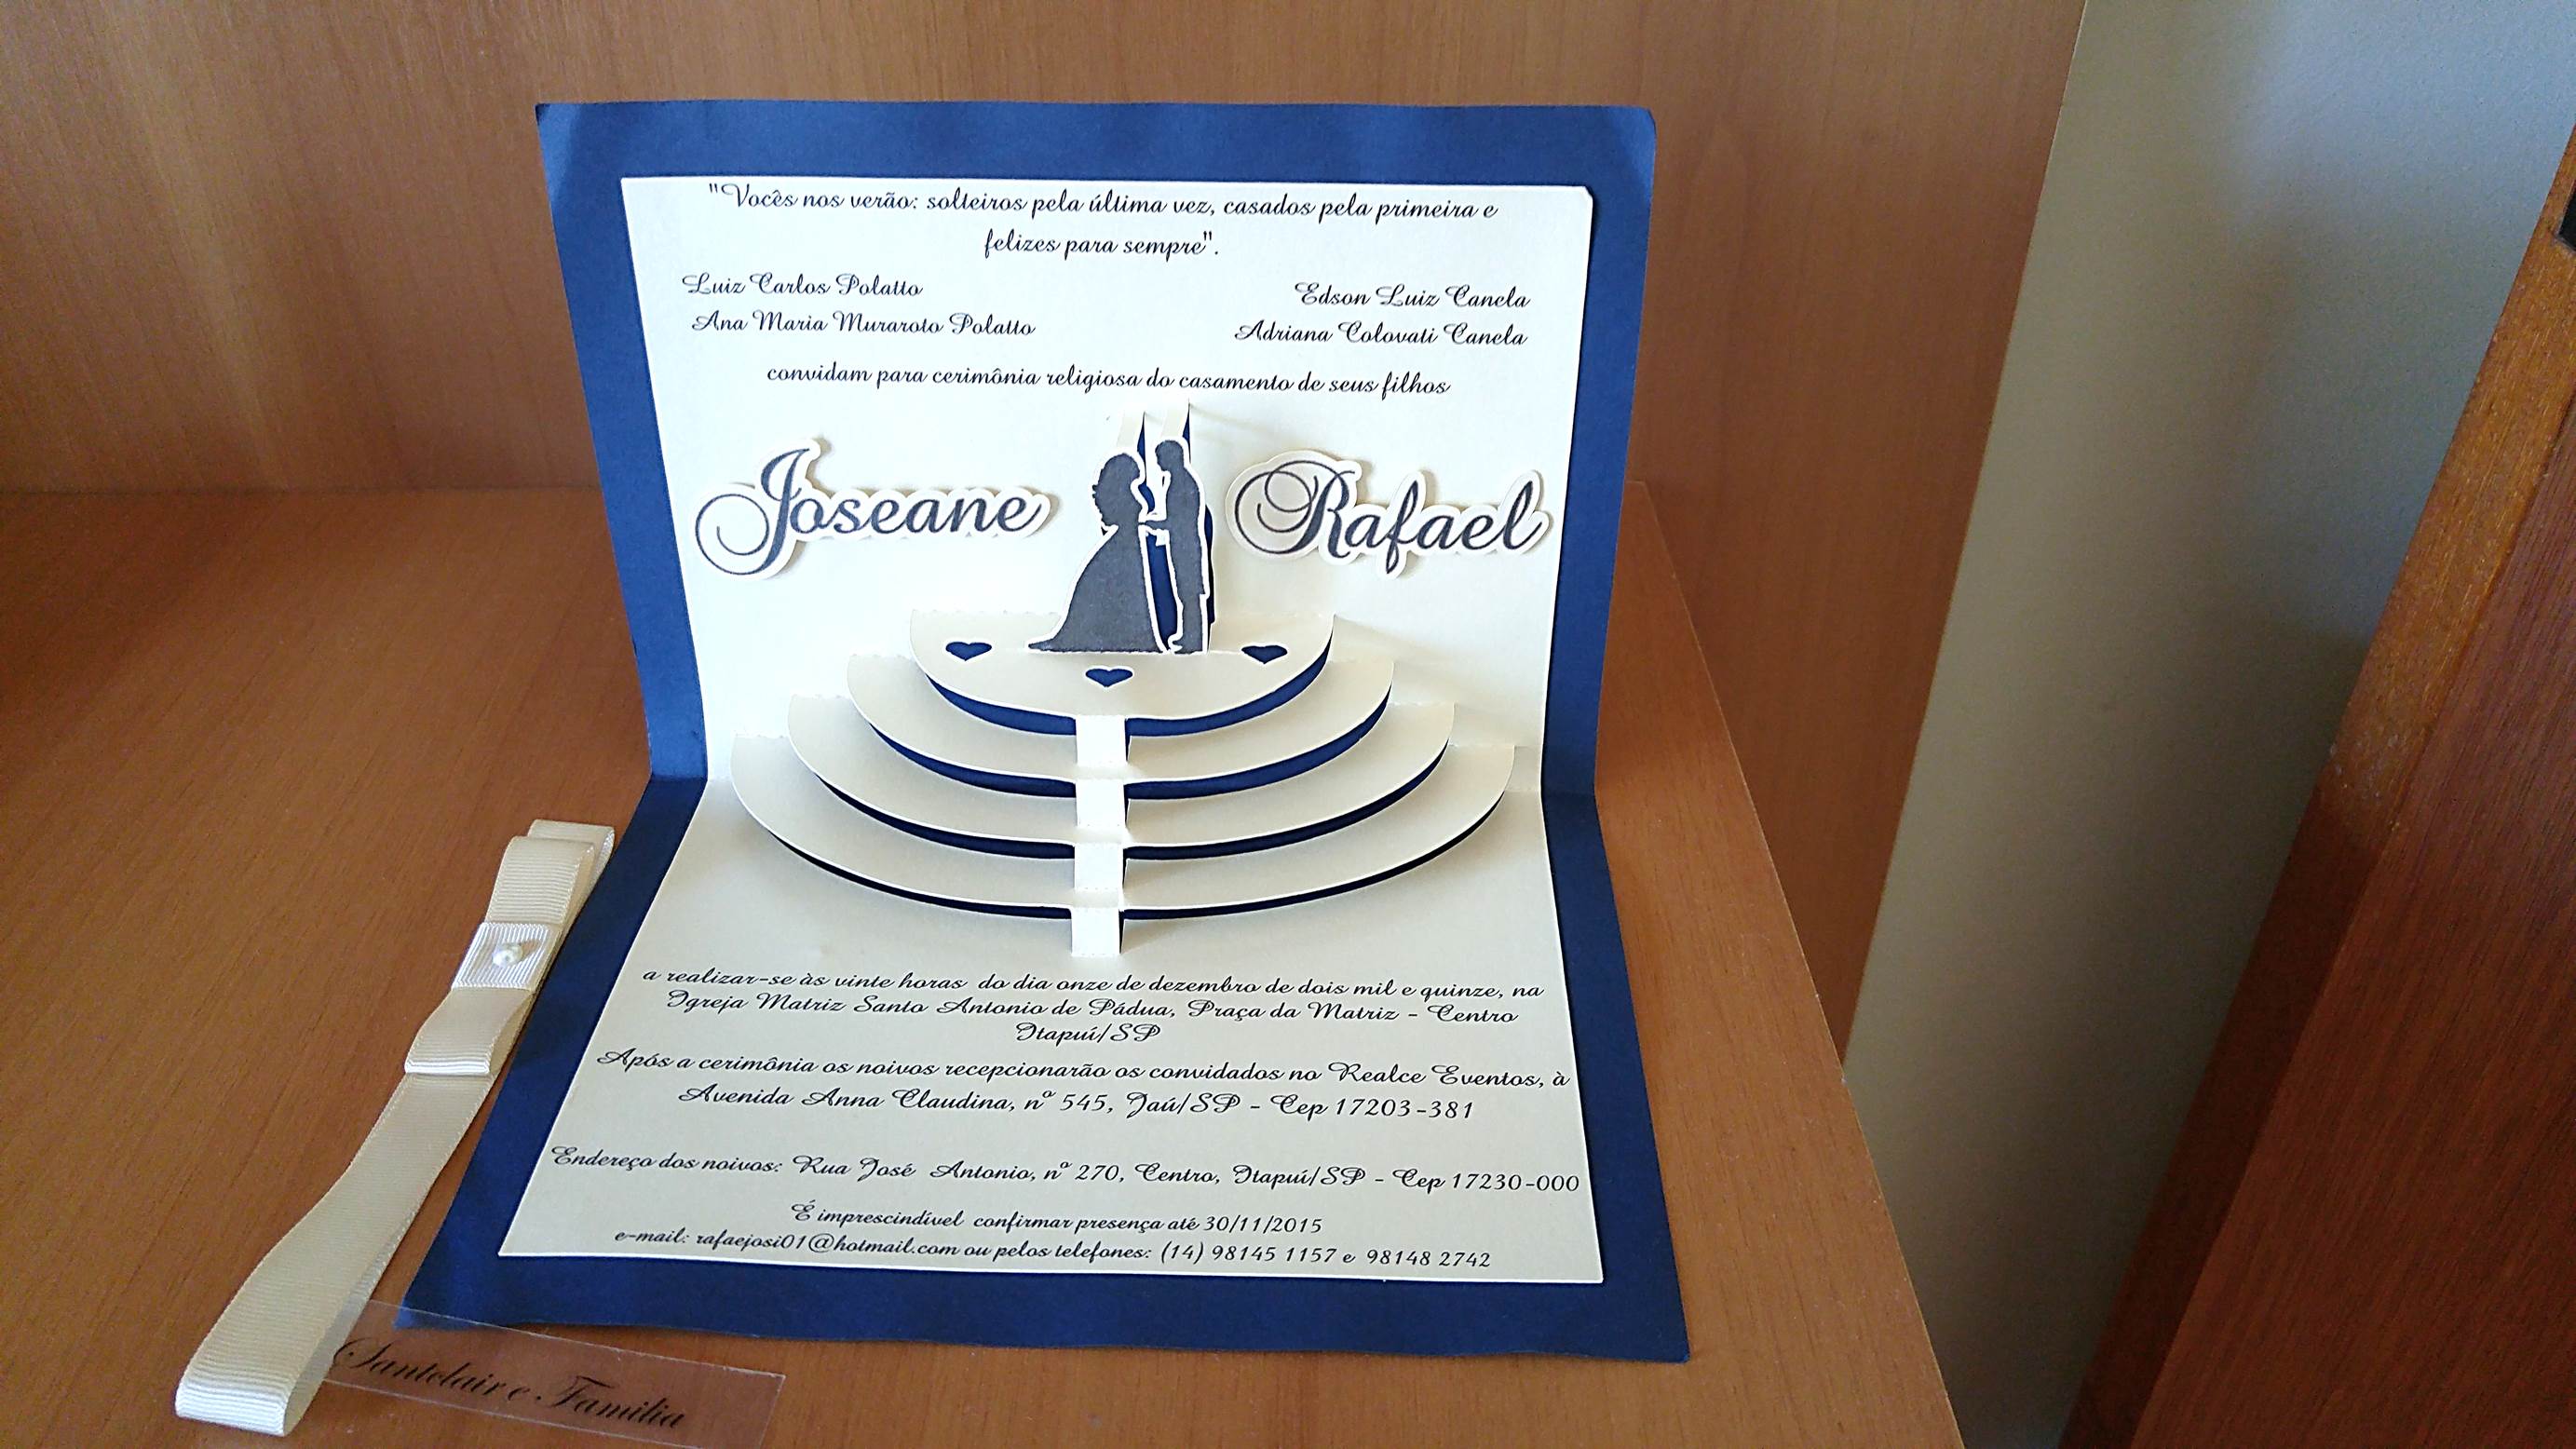 "Vocês nos verão: solteiros pela última vez, casados pela primeira e
felizes para sempre".
Luiz Carlos Polatto
Ana Maria Muraroto Polatto
Edson Luiz Canela
Adriana Colovati Canela
convidam para cerimônia religiosa do casamento de seus filhos
Joseane
Rafael
a realizar-se às vinte horas do dia onze de dezembro de dois mil e quinze, na
Igreja Matriz Santo Antonio de Pádua, Praça da Matriz - Centro
Itapuí/SP
Após a cerimônia os noivos recepcionarão os convidados no Realce Eventos, à
Avenida Anna Claudina, nº 545, Jaú/SP - Cep 17203-381
Endereço dos noivos: Rua José Antonio, nº 270, Centro, Itapuí/SP - Cep 17230-000
É imprescindível confirmar presença até 30/11/2015
e-mail: rafaejosi01@hotmail.com ou pelos telefones: (14) 98145 1157 e 98148 2742
Santclair e Familia